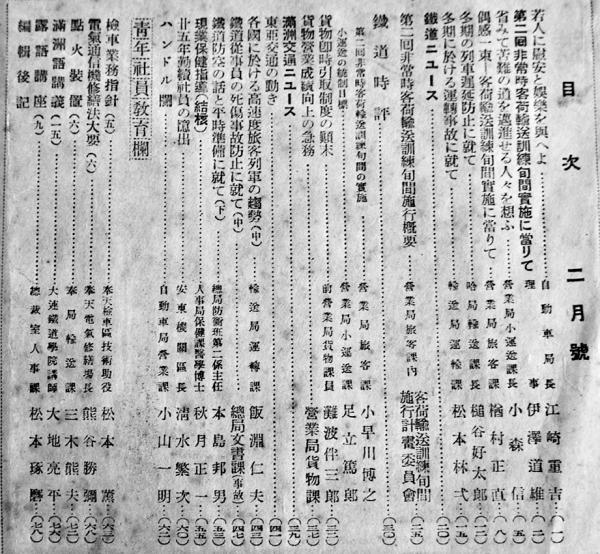 目次 二月號
若人に慰安と娯樂を與へよ 自動車局長 江崎重吉 (一)
第二回非常時客荷輸送訓練旬間實施に當りて 理事 伊澤道雄 (二)
省みて苦難の道を邁進せる人々を想ふ 營業局小運送課長 小森信 (五)
偶感一束―客荷輸送訓練旬間實施に當りて 營業局旅客課長 楢村正直 (八)
冬期の列車遲延防止に就て 哈局輸送課長 槌谷好太郎
冬期に於ける運轉事故に就て 輸送局運轉課 松本林弌
鐵道ニユース
第二回非常時客荷輸送訓練旬間施行概要 營業局旅客課內 客荷輸送訓練旬間施行計畫委員會
鐵道時評
第二回非常時客荷輸送訓練旬間の實施 營業局旅客課 小早川博之
小運送の統制目標 營業局小運送課 足立篤郎
貨物卽時引取制度の顚末 前營業局貨物課員 難波伴三郎
貨物營業成績向上の急務 營業局貨物課
滿洲交通ニユース
東亞交通の動き
各國に於ける高速度旅客列車の趨勢(中) 輸送局運轉課 飯淵仁夫
鐵道從事員の死傷事故防止に就て(中) 總局文書課(事故)
鐵道防空の話と平時準備に就て(下) 總局防衛班第二係主任 本島邦男
現業保健指鍼(結核) 人事局保健課醫學博士 秋月正一
廿五年勤續社員の憶出 安東機關區長 淸水繁次
ハンドル閣 自動車局營業課 小山一明
靑年社員敎育欄
檢車業務指針(五) 奉天檢車區技術助役 松本薰
電氣通信機修繕法大要(六) 奉天電氣修繕場長 熊谷勝彌
點火裝置(六) 奉局輸送課 三木熊夫
滿洲語講義(一五) 大連鐵道學院講師 大地亮平
露語講座(九) 總裁室人事課 松本琢磨
編輯後記